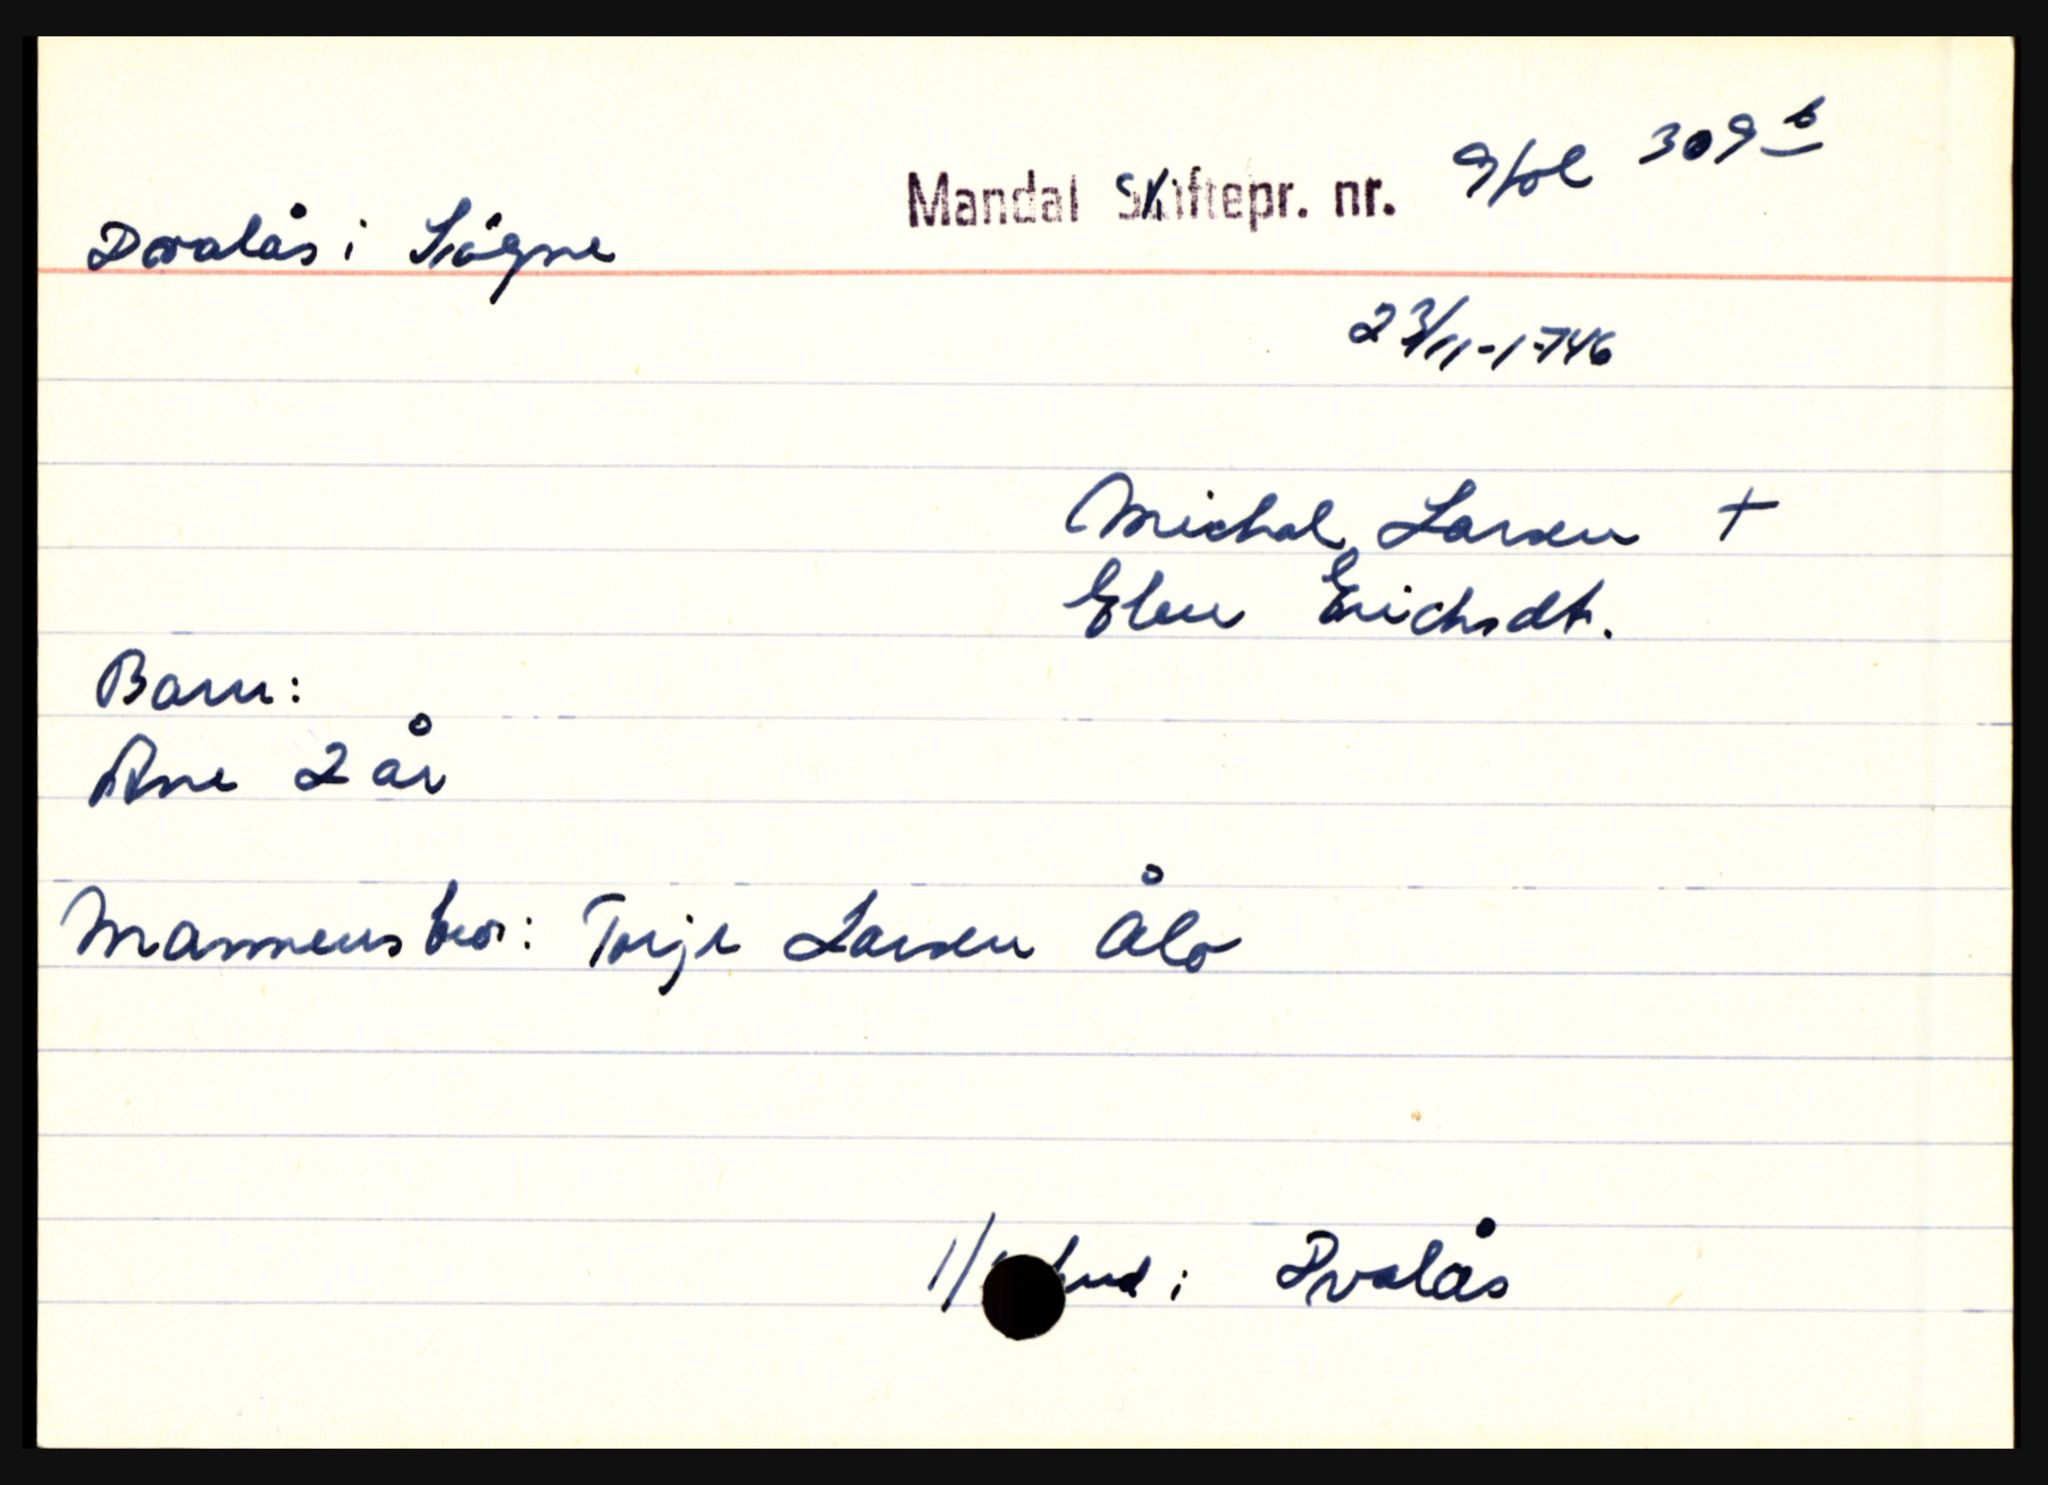 Mandal Skiftepr. nr. 9 fol 309 b
Dvalås i Søgne
23/11-1746
Michal Larsen †
Elen Erichsdt.
Barn:
Ane 2 år
Mannens bro: Torje Larsen Ålo
hud i Dvalås